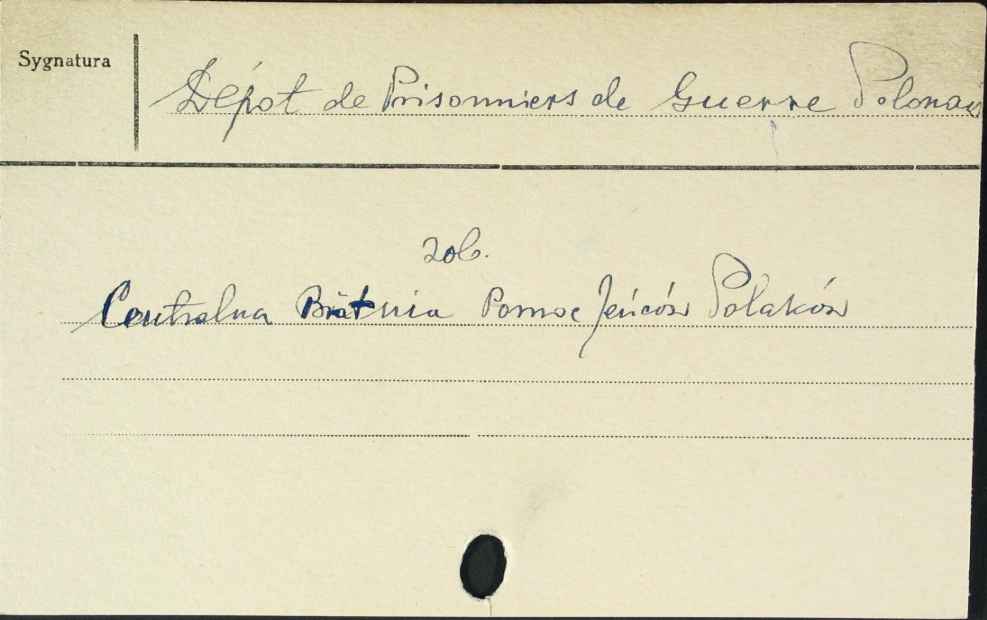 Sygnatura
Dépot de Prisonniers de Guerre Polonais
zob.
Centralna Bratnia Pomoc Jeńców Polaków